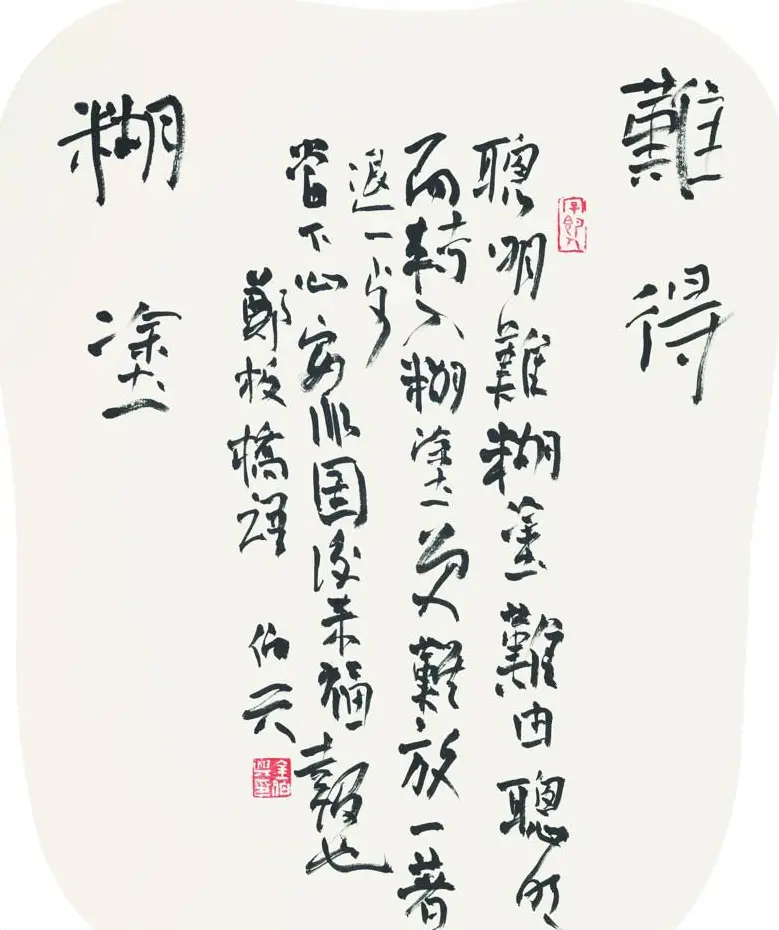 難得
聰明難糊塗難由聰明
而轉入糊塗更難放一著
退一步
當下心安非圖後来福報也
鄭板橋語 伯
金伯
糊塗